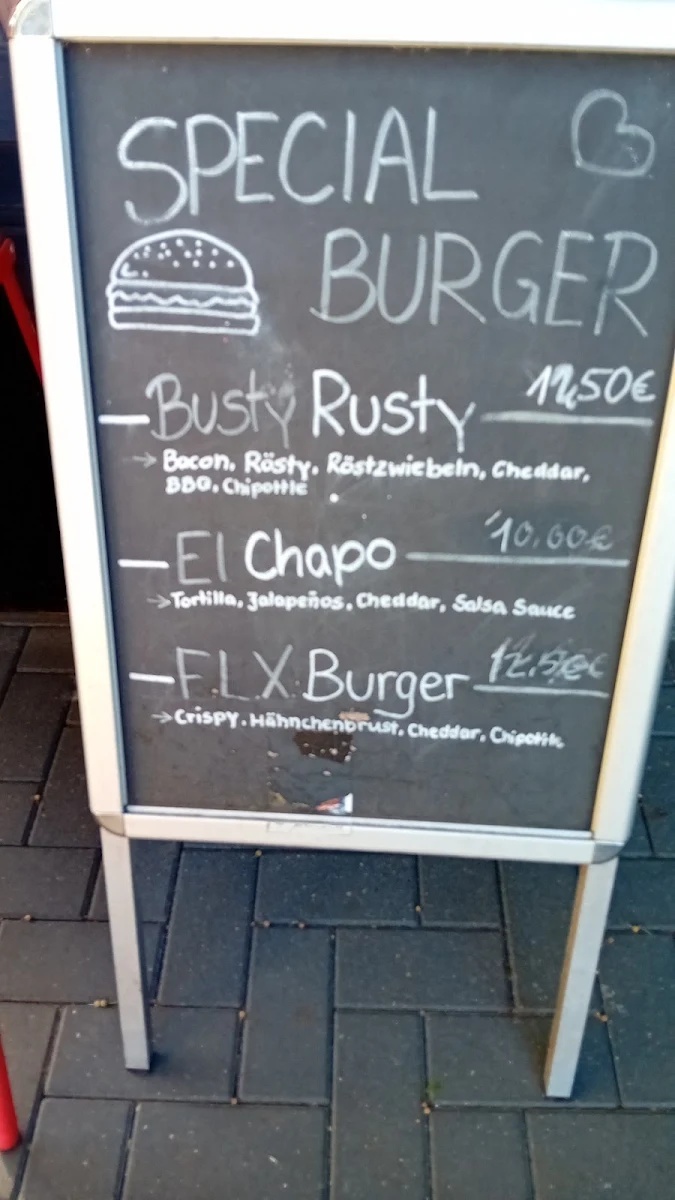 SPECIAL
BURGER
Busty Rusty 12,50€
Bacon, Rösty, Röstzwiebeln, Cheddar,
BBQ, Chipottle
El Chapo 10.00€
Tortilla, Jalapeños, Cheddar, Salsa Sauce
FLX Burger 12.50€
Crispy. Hähnchenbrust, Cheddar, Chipottle